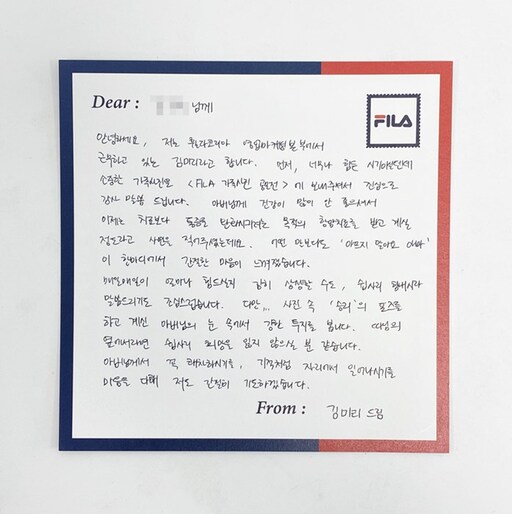 Dear : 님께
FILA
안녕하세요, 저는 휠라코리아 영업마케팅본부에서
근무하고 있는 김미리라고 합니다. 먼저, 너무나 힘든 시기이실텐데
소중한 가족사진을 <FILA 가족사진 공모전>에 보내주셔서 진심으로
감사 말씀 드립니다. 아버님께 건강이 많이 안 좋으셔서
이제는 치료보다 통증을 완화시키려는 목적의 항암치료를 받고 계실
정도라고 사연을 적어주셨는데요. 어떤 말보다도 '아프지 말아요 아빠'
이 한마디에서 간절한 마음이 느껴졌습니다.
매일매일이 얼마나 힘드실지 감히 상상할 수도, 쉽사리 힘내시라
말씀드리기도 조심스럽습니다. 다만... 사진 속 '승리'의 포즈를
하고 계신 아버님의 눈 속에서 강한 투지를 봅니다. 따님의
옆에서라면 쉽사리 희망을 잃지 않으실 분 같습니다.
아버님께서 꼭 쾌차하시기를, 기적처럼 자리에서 일어나시기를
마음을 다해 저도 간절히 기도하겠습니다.
From : 김미리 드림